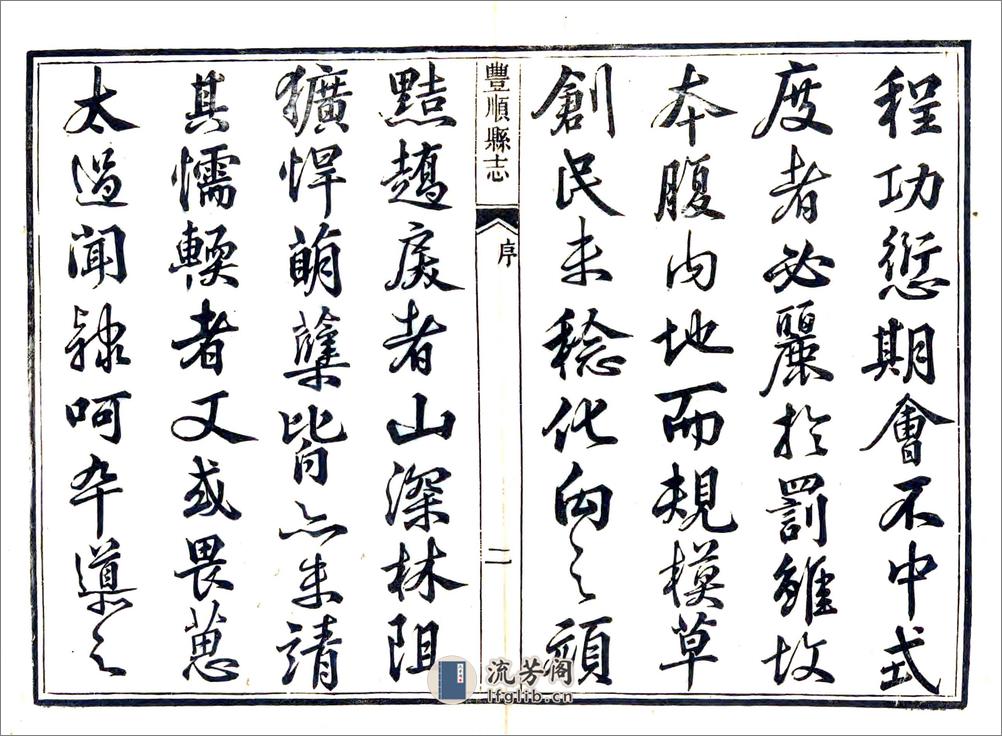 程功愆期會不中式
度者必麗於罰雖故
本腹内地而規模草
創民未稔化向之頑
豐順縣志
序
二
黠趫宄者山深林阻
獷悍萌蘖皆亦未靖
其懦輭者又或畏葸
太過聞隸呵卒導之
流芳阁
lfglib.cn